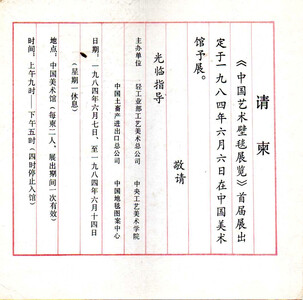 请柬
《中国艺术壁毯展览》首届展出
定于一九八四年六月六日在中国美术
馆予展。
敬请
光临指导
主办单位
轻工业部工艺美术总公司
中央工艺美术学院
中国土畜产进出口总公司
中国地毯图案中心
日期：一九八四年六月七日、至一九八四年六月十四日
（星期一休息）
地点：中国美术馆（每柬二人，展出期间一次有效）
时间：上午九时——下午五时（四时停止入馆）